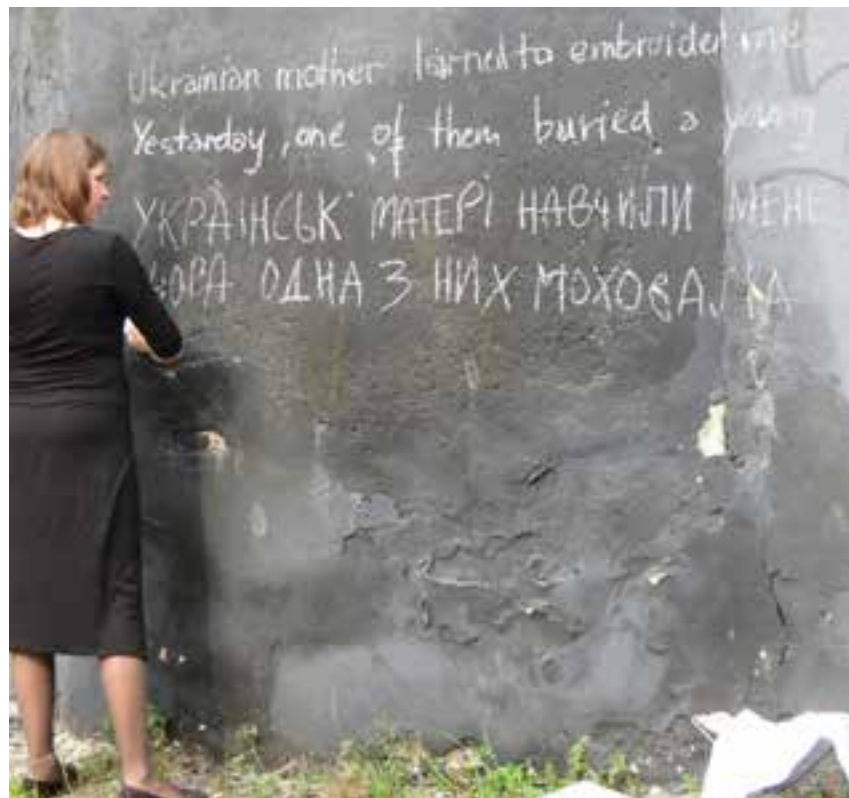 Ukrainian mother larned to embroider me
Yestarday, one of them buried a young
УКРАЇНСЬК МАТЕРІ НАВЧИЛИ МЕНЕ
ОДНА З НИХ МОХОВАЛА